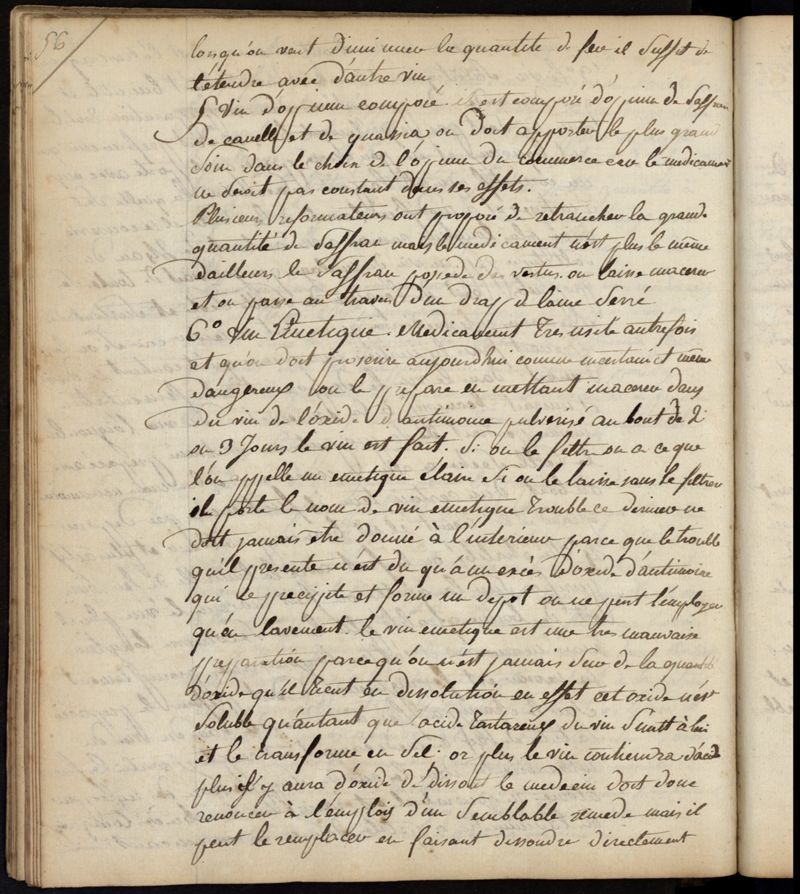 56
lorsqu'on veut diminuer la quantité de fer il suffit de
l'étendre avec d'autre vin
5 Vin d'opium composé. il est composé d'opium de Saffran
de canelle et de quassia, on doit apporter le plus grand
soin dans le choix de l'opium du commerce car le médicament
ne seroit pas constant dans ses effets.
Plusieurs reformateurs ont proposé de retrancher la grande
quantité de Saffran mais le medicament n'est plus le même
d'ailleurs le Saffran possede des vertus. on laisse macerer
et on passe au travers d'un drap de laine serré
6° Vin Emetique. Medicament tres usité autrefois
et qu'on doit proscrire aujourdhui comme incertain et même
dangereux on le prepare en mettant macerer dans
du vin de l'oxide d'antimoine pulverisé au bout de 2
ou 3 Jours le vin est fait. Si on le filtre on a ce que
l'on appelle un emetique clair Si on le laisse sans le filtrer
il porte le nom de vin emetique trouble ce dernier ne
doit jamais etre donné à l'interieur parce que le trouble
qu'il presente n'est du qu'à un excès d'oxide d'antimoine
qui se precipite et forme un depot on ne peut l'employer
qu'en lavement. le vin emetique est une tres mauvaise
preparation parcequ'on n'est jamais sur de la quantité
d'oxide qu'il tient en dissolution en effet cet oxide n'est
soluble qu'autant que l'acide tartareux du vin s'unit à lui
et le transforme en sel. or plus le vin contiendra d'acide
plus il y aura d'oxide de dissout le medecin doit donc
renoncer à l'emplois d'un semblable remede mais il
peut le remplacer en faisant dissoudre directement